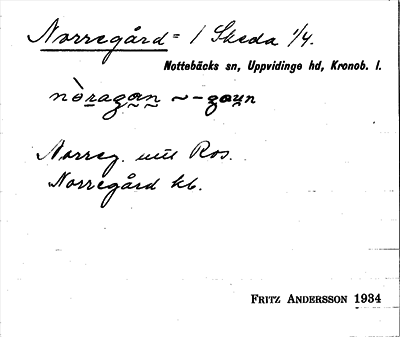 Norregård = 1 Skeda 1/4.
Nottebäcks sn, Uppvidinge hd, Kronob. l.
nòragan ~ –gaun
Norreg. Ros.
Norregård kb.
FRITZ ANDERSSON 1934